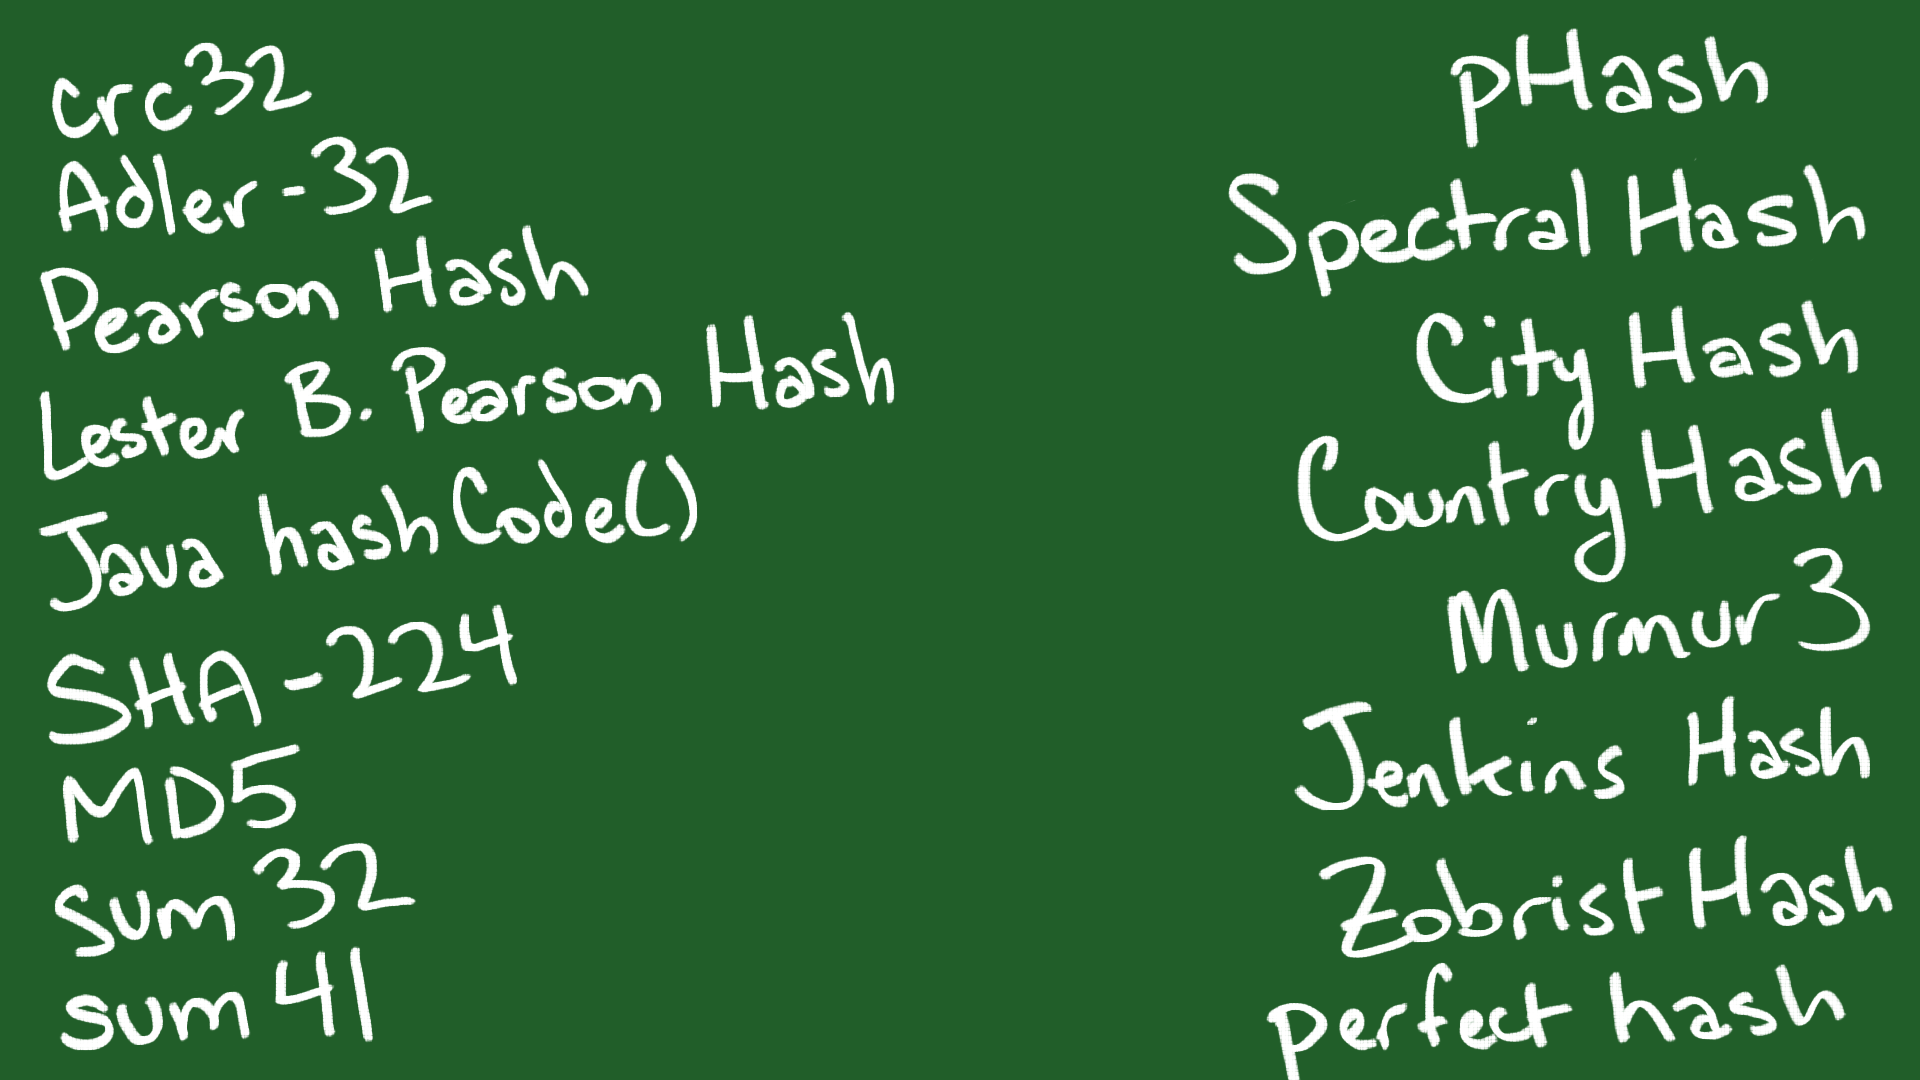 crc32
Adler-32
Pearson Hash
Lester B. Pearson Hash
Java hashCode()
SHA-224
MD5
sum32
sum41
pHash
Spectral Hash
City Hash
Country Hash
Murmur3
Jenkins Hash
Zobrist Hash
perfect hash